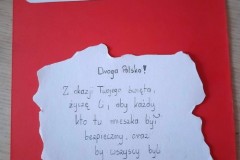 Droga Polsko!
Z okazji Twojego święta,
życzę Ci, aby każdy
kto tu mieszka był
bezpieczny, oraz
by wszyscy byli